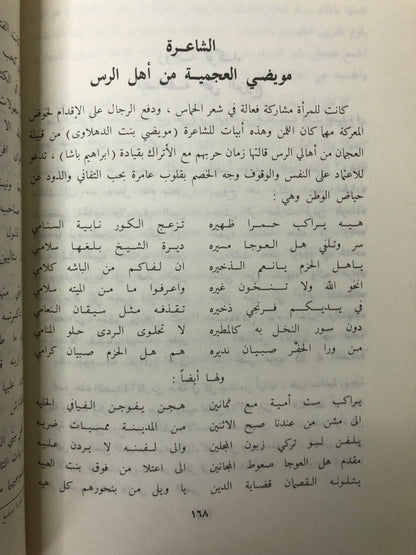 الشاعرة
مويضي العجمية من أهل الرس
كانت للمرأة مشاركة فعالة في شعر الحماس ، ودفع الرجال على الإقدام لخوض
المعركة مهما كان الثمن وهذه أبيات للشاعرة (مويضي بنت الدهلاوى) من قبيلة
العجمان من أهالي الرس قالتها زمان حربهم مع الأتراك بقيادة (ابراهيم باشا) ، تدعو
للاعتماد على النفس والوقوف وجه الخصم بقلوب عامرة بحب التفاني والذود عن
حياض الوطن وهي :
هيه يراكب حمرا ظهيره تزعج الكور نابية السنامي
سر وتلفي هل العوجا مسيره ديرة الشيخ بلغها سلامي
ياهل الحزم يانعم الذخيره ان لفاكم من الباشه كلامي
انخو الله ولا تنخون غيره واعرفوا ما من الميته سلامي
في يديكم فرنجي ذخيره تقذفه مثل سيقان النعامي
دون سور النخل به كالمطيره لا تحلوى الردى حلو المنامي
من ورا الحفر صبيان نديره هم هل الحزم صبيان كرامي
ولها أيضاً :
يراكب ست أمية مع ثمانين هجن يفوجن الفيافي الخليه
الى مشن من عندنا صبح الاثنين من المدينة ممسيات ضريه
يلفن لبو تركي زبون المجلين والى لفنه لا يردن عليه
مقدم هل العوجا صعوط المجانين الى اعتلا من فوق بنت العبيه
يتلونه القصمان قضاية الدين يا ويل من بنحورهم كل هيه
١٦٨